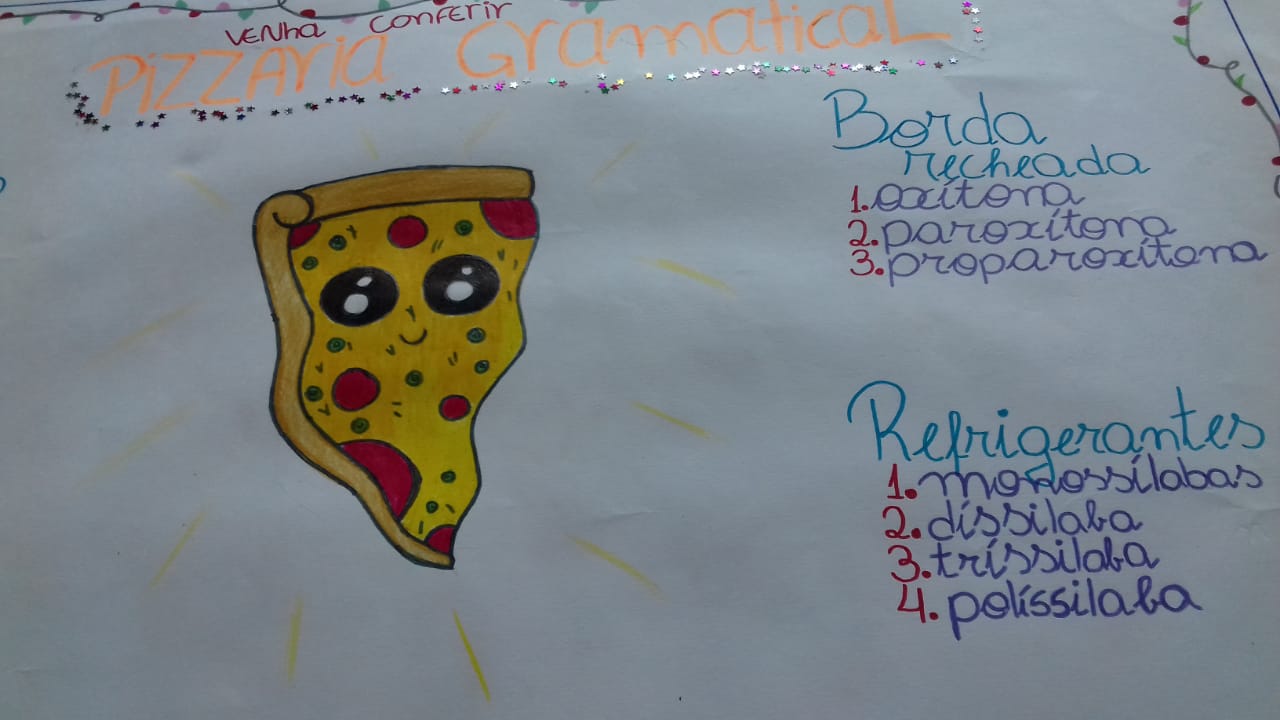 VENha CONFERIR
PIZZARIA GRAMATICAL
Borda
recheada
1. oxítona
2. paroxítona
3. proparoxítona
Refrigerantes
1. monossílabas
2. díssilaba
3. tríssilaba
4. políssilaba